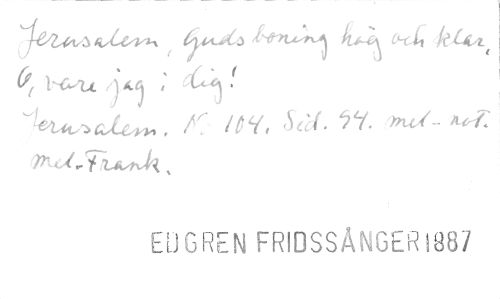 Jerusalem, Guds boning hög och klar,
O, vare jag i dig!
Jerusalem. N. 104. Sid. 94. mel-not.
mel-Frank.
EDGREN FRIDSSÅNGER 1887